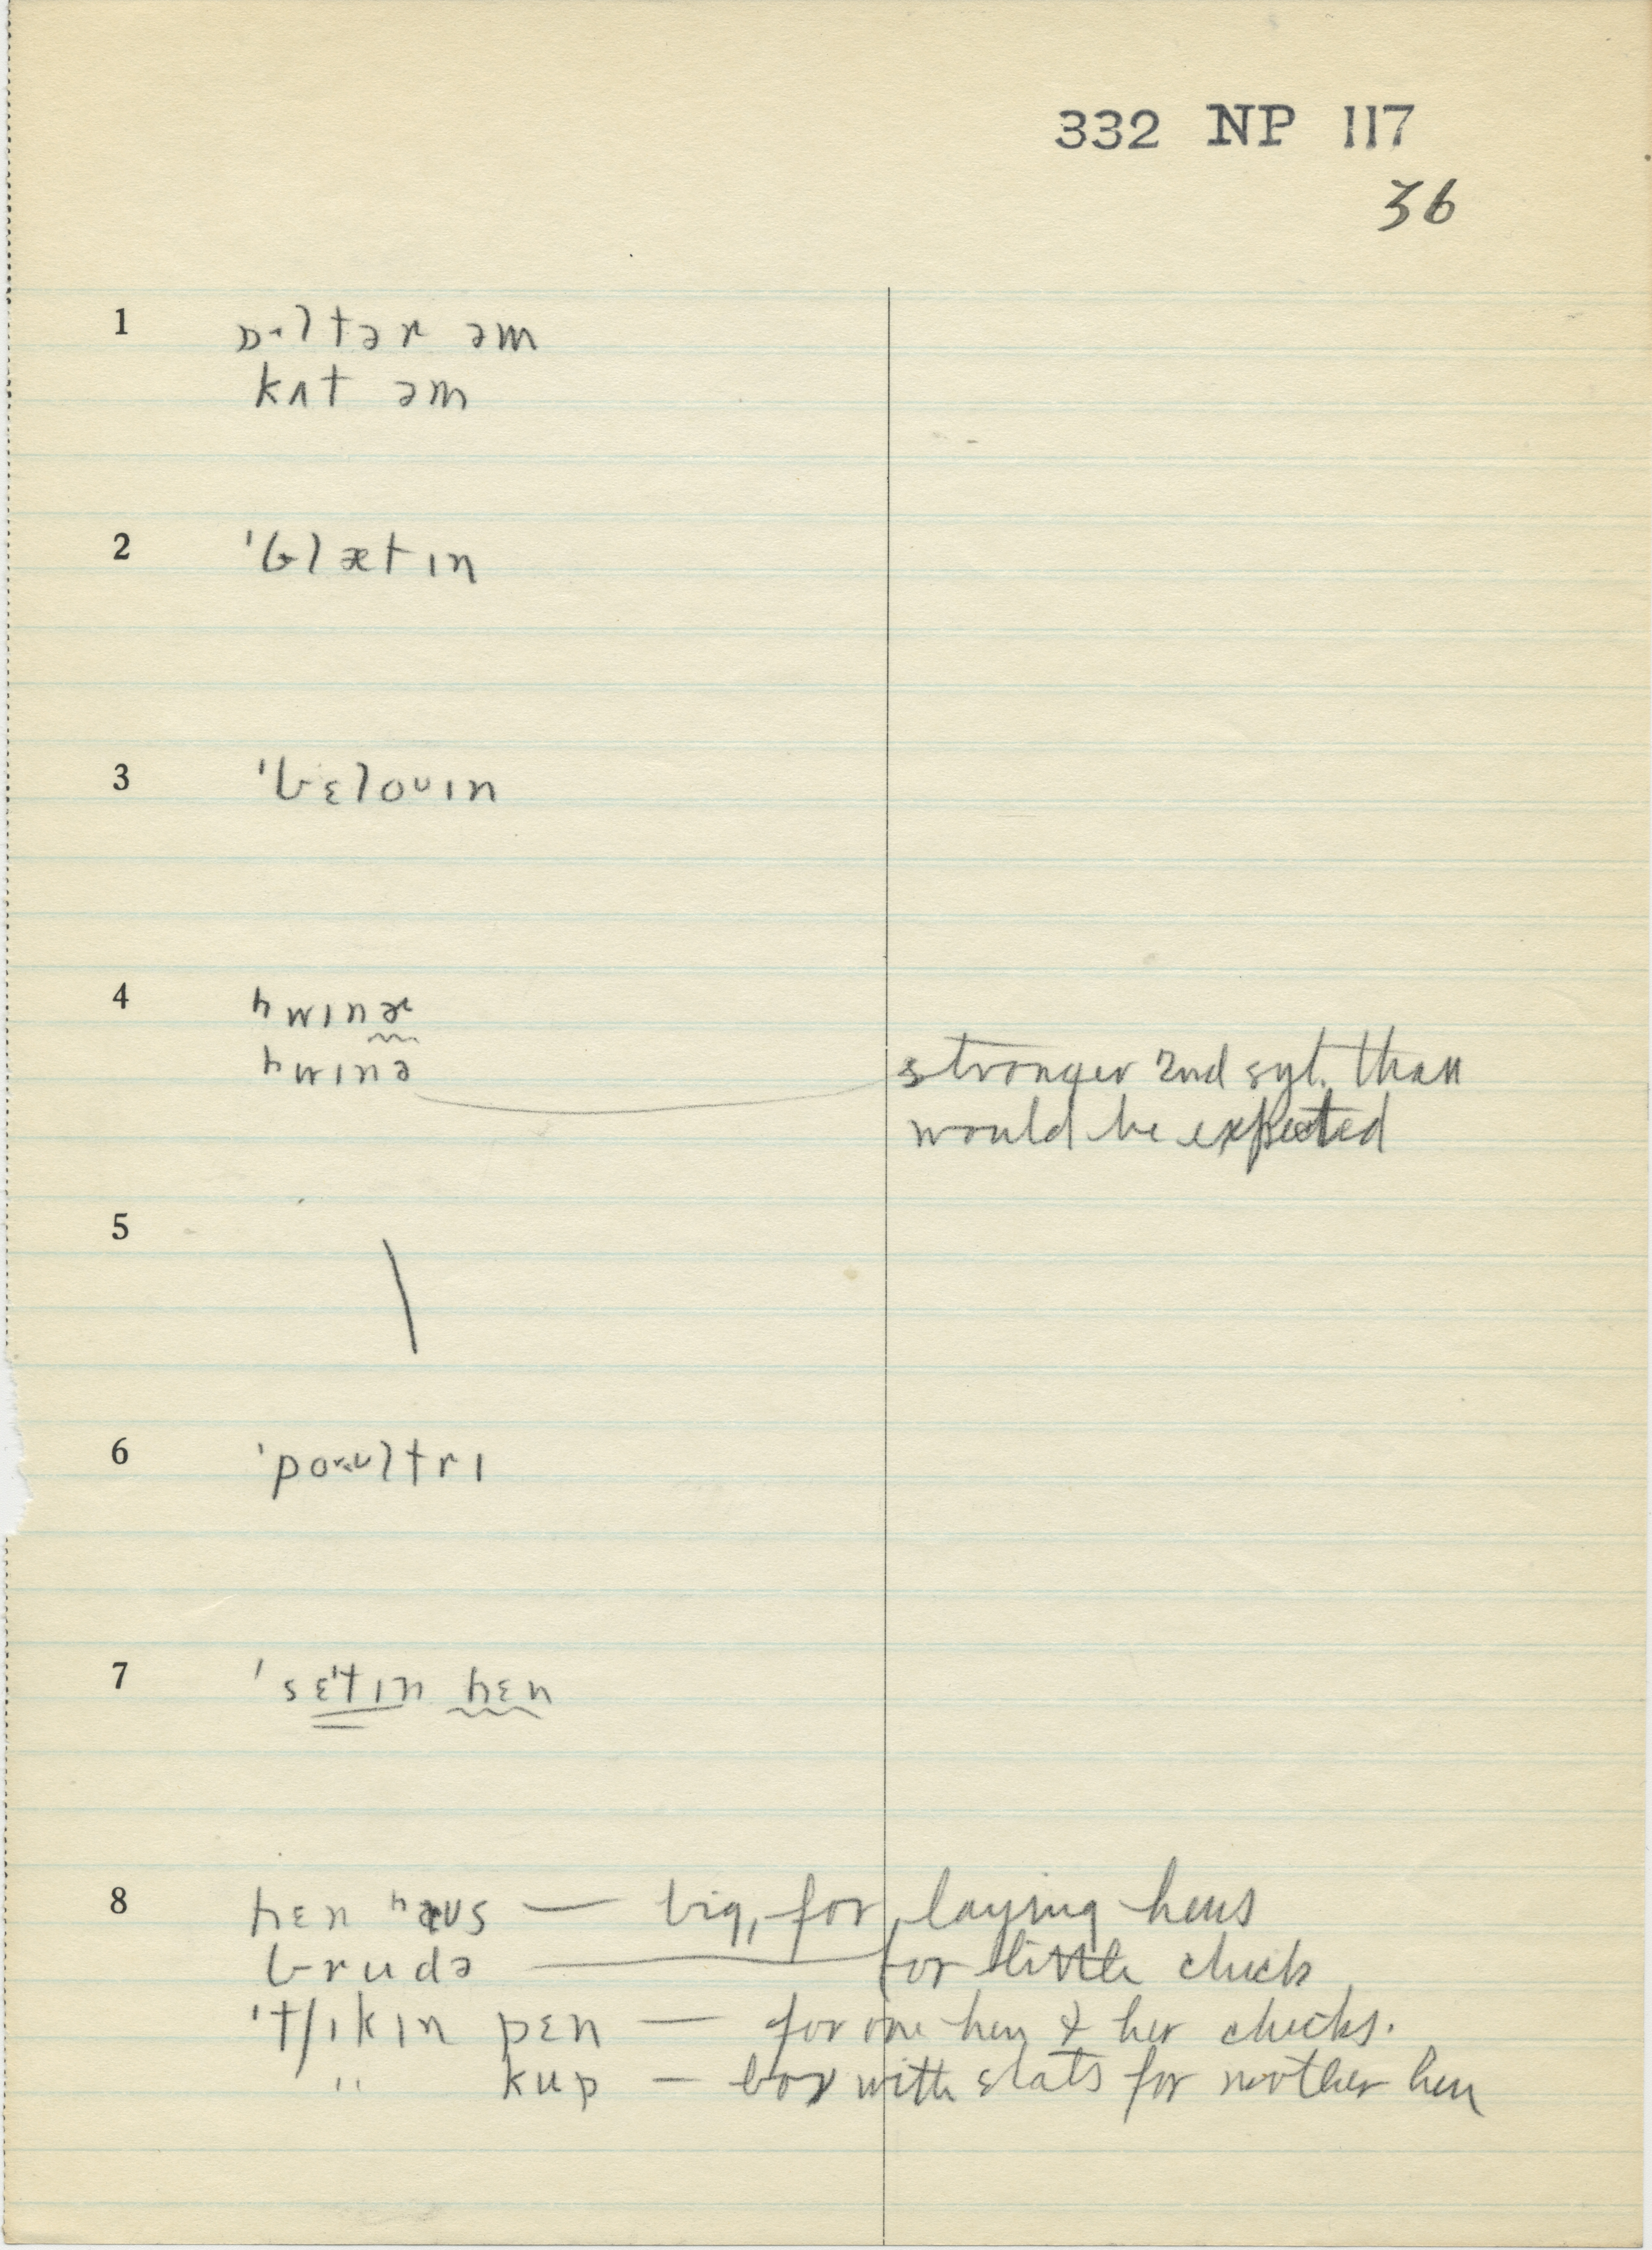 332 NP 117
36
1 ɒ·ltəɹ əm
kʌt əm
2 ˈblætɪn
3 ˈbɛloᴜɪn
4 ʰwɪnɚ
ʰwɪnə stronger 2nd syl. than
would be expected
5 \
6 ˈpoᴜltrɪ
7 ˈsɛtɪn hɛn
8 hɛn ʰaᴜs — big, for laying hens
brudə — for little chick
ˈtʃɪkɪn pɛn — for one hen & her chicks.
" kup — box with slats for mother hen